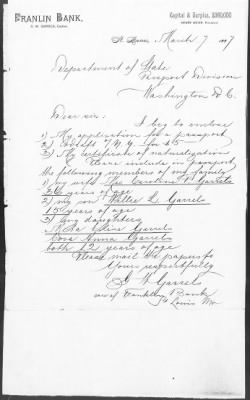 FRANLIN BANK,
G. W. GARRELS, Cashier.
Capital & Surplus, $360,000
HENRY MEIER, President.
St. Louis, March 7
Department of State
Passport Division
Washington D.C.
Dear sir: I beg to enclose
1) My application for a passport
2) Draft N.Y. for
3) My certificate of naturalization
Please include in passport,
the following members of my family
1) my wife Mrs Caroline Garrels
36 years of age
2) my son Walter L. Garrels
15 years of age
3) my daughters
Alice Garrels
Cora Anna Garrels
both 12 years of age
Please mail the papers to
Yours respectfully
G W Garrels
care of Franklin Bank
St Louis Mo